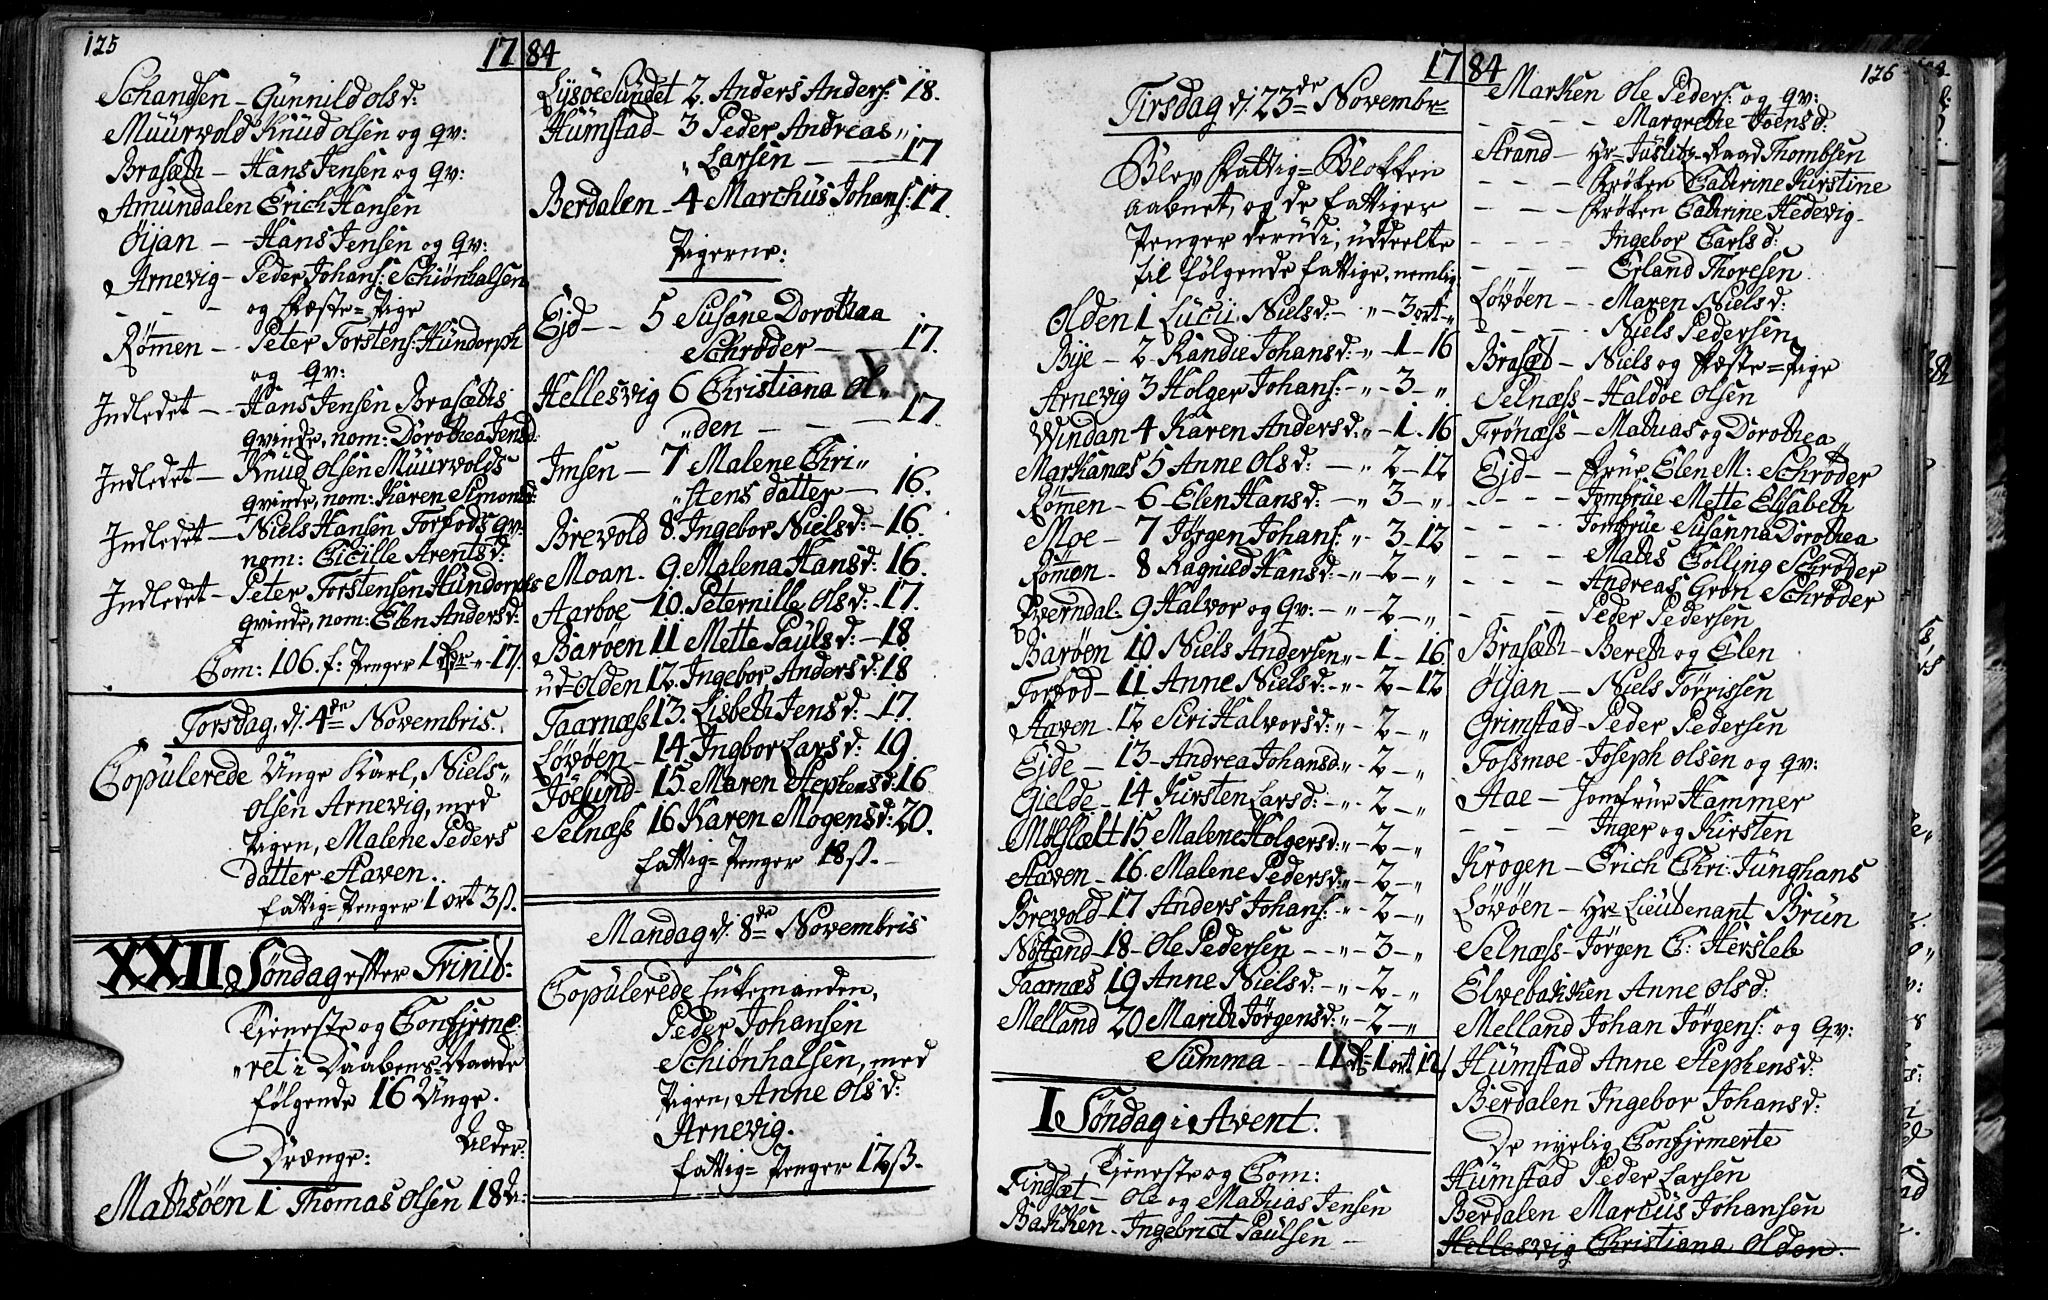 125
1784
Schandsen - Gunnild Ols d:
Muurvold Knud Olsen og Qv:
Brasæth - Hans Jensen og Qv:
Amundalen Erich Hansen
Öijan - Hans Jensen og Qv:
Arnevig - Peder Johans: Schiønhalsen
- - - og Fæste=Pige
Römen - Peter Torstens: Hundorph
og Qv:
Indledet - Hans Jensen Brasæths
Qvinde, nom: Dorothea Jensd:
Indledet - Knud Olsen Muurvolds
Qvinde, nom: Karen Simonsd:
Indledet - Niels Hansen Torfods Qv:
nom: Cicille Arentsd:
Indledet - Peter Torstensen Hundorphs
Qvinde, nom: Elen Anders d:
Com: 106. f: Penger 1 - 17.
Torsdag, d: 4de Novembris.
Copulerede Unge Karl, Niels
Olsen Arnevig, med
Pigen, Malene Peders
datter Haven.
fattig=Penger 1 ort 3 ß.
XXII Søndag efter Trinit:
Tjeneste og Confirme
ret i Daabens Naade
følgende 16 Unge.
Drænge: Alder:
Mathisöen 1 Thomas Olsen 18
Lysöe Sundet 2. Anders Anders: 18.
Humstad - 3 Peder Andreas
Larsen - 17
Berdalen - 4 Marchus Johans: 17.
Pigerne:
Ejd - - 5 Susane Dorothea
Schrøder - 17.
Hellesvig 6 Christiana Ol
den - - - 17.
Imsen - 7 Malene Chri
stens datter - 16.
Brevold 8 Ingebor Niels d: - 16.
Moan - 9. Malena Hans d: 16.
Aarboe 10. Peternille Ols d: - 17.
Baröen 11 Mette Pauls d: - 18.
ud=Olden 12. Ingebor Anders d: 18
Taarnæss 13. Lisbeth Jens d: - 17.
Lövöen - 14 Ingbor Lars d: 19.
Jöesund - 15. Maren Stephens d: 16
Selnæss 16 Karen Mogens d: 20.
fattig=Penger 18 ß. -
Mandag d: 8de Novembris
Copulerede Enkemanden,
Peder Johansen
Schiønhalsen, med
Pigen, Anne Ols d:
Arnevig.
fattig=Penger 12 ß.
1784
126
Tirsdag d: 23de Novembr
Blev Fattig=Blokken
aabnet, og de fattiger
Penger derudi, uddeelte
til følgende fattige, nemlig
Olden 1 Lucii Niels d: - " - 3 ort "
Bye - 2 Randie Johans d: " - 1 - 16
Arnevig 3 Holger Johans: - " - 3 - "
Windan 4 Karen Anders d: " - 1 - 16
Markanæs 5 Anne Ols d: - " 2 - 12
Römen - 6 - Elen Hans d: - " 3 - "
Moe - 7 Jørgen Johans: " - 3 - 12
Römen - 8 Ragnild Hans d: - " - 2 - "
Qverndal - 9 Halvor og Qv: - " - 2 - "
Baröen 10 Niels Andersen " - 1 - 16
Torfod - 11 Anne Niels d: - " - 2 - 12
Haven - 12 Siri Halvors d: " - 2 - "
Ejde - 13 - Andrea Johans d: " - 2 - "
Gielde - 14 Kirsten Lars d: - " - 2 - "
15 Malene Holgers d: " - 2 - "
Haven - 16. Malene Peders d: " - 2 - "
Brevold - 17 Anders Johans: " - 2 - "
Nøstand - 18 - Ole Pedersen - " - 3 - "
Taarnæs 19 Anne Niels d: - " - 2 - "
Melland 20 Marith Jørgens d: " - 2 - "
Summa - - 11 1 ort 12
I Søndag i Avent.
Tjeneste og Com:
Tindsæt - Ole og Mathias Jensen
Bakken - Ingebrict Paulsen -
Marken Ole Peders: og Qv:
- - - - Margrethe Joens d:
Strand - Hr=Justitz=Raad Thombsen
- - - Frøken Cathrine Kirstine
- - - Frøken Cathrine Hedevig -
- - - - Ingebor Carls d:
- - - Erland Thoresen
Lövöen - - Maren Niels d:
- - - Niels Pedersen
Brasæt - Niels og Fæste=Pige
Selnæss - Haldoe Olsen
Frönæss - Mathias og Dorothea
Ejd - - Frue Elen M: Schrøder
- - - Jomfrue Mette Elisabeth
- - - Jomfrue Susanna Dorothea
- - - Maths Colling Schrøder
- - - Andreas Grøn Schrøder
- - - Peder Pedersen
Brasæth - Bereth og Elen
Öijan - Niels Törrissen
Grimstad - Peder Pedersen
Fossmoe - Joseph Olsen og Qv:
Hae - Jomfrue Hammer
- - - Inger og Kirsten
Krogen - Erich Chri: Junghans
Lövöen - Hr Lieutenant Brun
Selnæss - Jörgen C: Hersleb
Elvebakken Anne Ols d:
Melland Johan Jørgens: og Qv:
Humstad Anne Stephens d:
Berdalen Ingebor Johans d:
De nyelig Confirmerte
Humstad Peder Larsen
Berdalen Marcus Johansen
Hellesvig Christiana Olden.